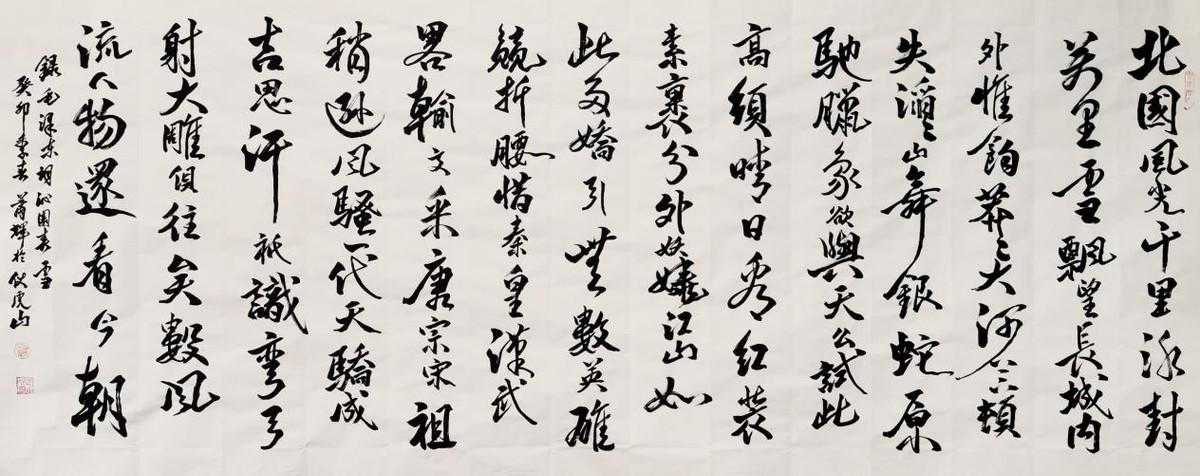 北國風光千里冰封
萬里雪飄望長城内
外惟餘莽々大河上下頓
失滔々山舞銀蛇原
馳臘象欲與天公試比
高須晴日看紅裝
素裹分外妖嬈江山如
此多嬌引無數英雄
競折腰惜秦皇漢武
畧輸文采唐宗宋祖
稍遜風騷一代天驕成
吉思汗祇識彎弓
射大雕俱往矣數風
流人物還看今朝
錄毛澤東詞沁園春雪
癸卯季春輝於伏虎山